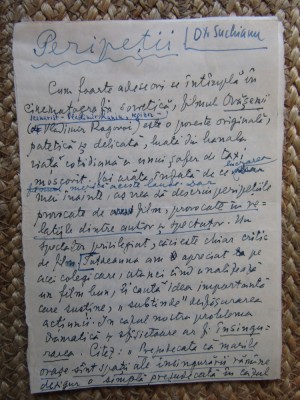 Peripeții / Dh Suchianu
Cum foarte adesea se întîmplă în
cinematografia sovietică, filmul Orășenii
Vladimir Rogovoi) este o poveste originală,
patetică și delicată, luată din banala
viață cotidiană a unui șofer de taxi,
moscovit. Își arăta, fruntată de ce
mai înainte, aș vrea să descriu peripețiile
provocate de film, provocate în re-
lațiile dintre autor și spectator. Un
spectator privilegiat, căci este chiar critic
de film. Totdeauna am apreciat pe
acei colegi care, atunci cînd analizează
un film bun, îi caută ideea importantă
care susține, „subîntinde" desfășurarea
acțiunii. În cazul nostru problema
dramatică și sfîșietoare ar fi însingu-
rarea. Citez: „Prejudecata că marile
orașe sînt spații ale însingurării rămîne
desigur o simplă prejudecată în cazul